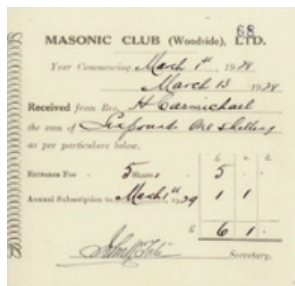 68
MASONIC CLUB (Woodside), LTD.
Year Commencing March 1st 1928
March 13 1928
Received from Bro. H Carmichael
the sum of Six pounds One shilling
as per particulars below.
£ s. d.
Entrance Fee - 5 Shares 5 - -
Annual Subscription to March 1st 1929 1 1
£ 6 1 -
Secretary.